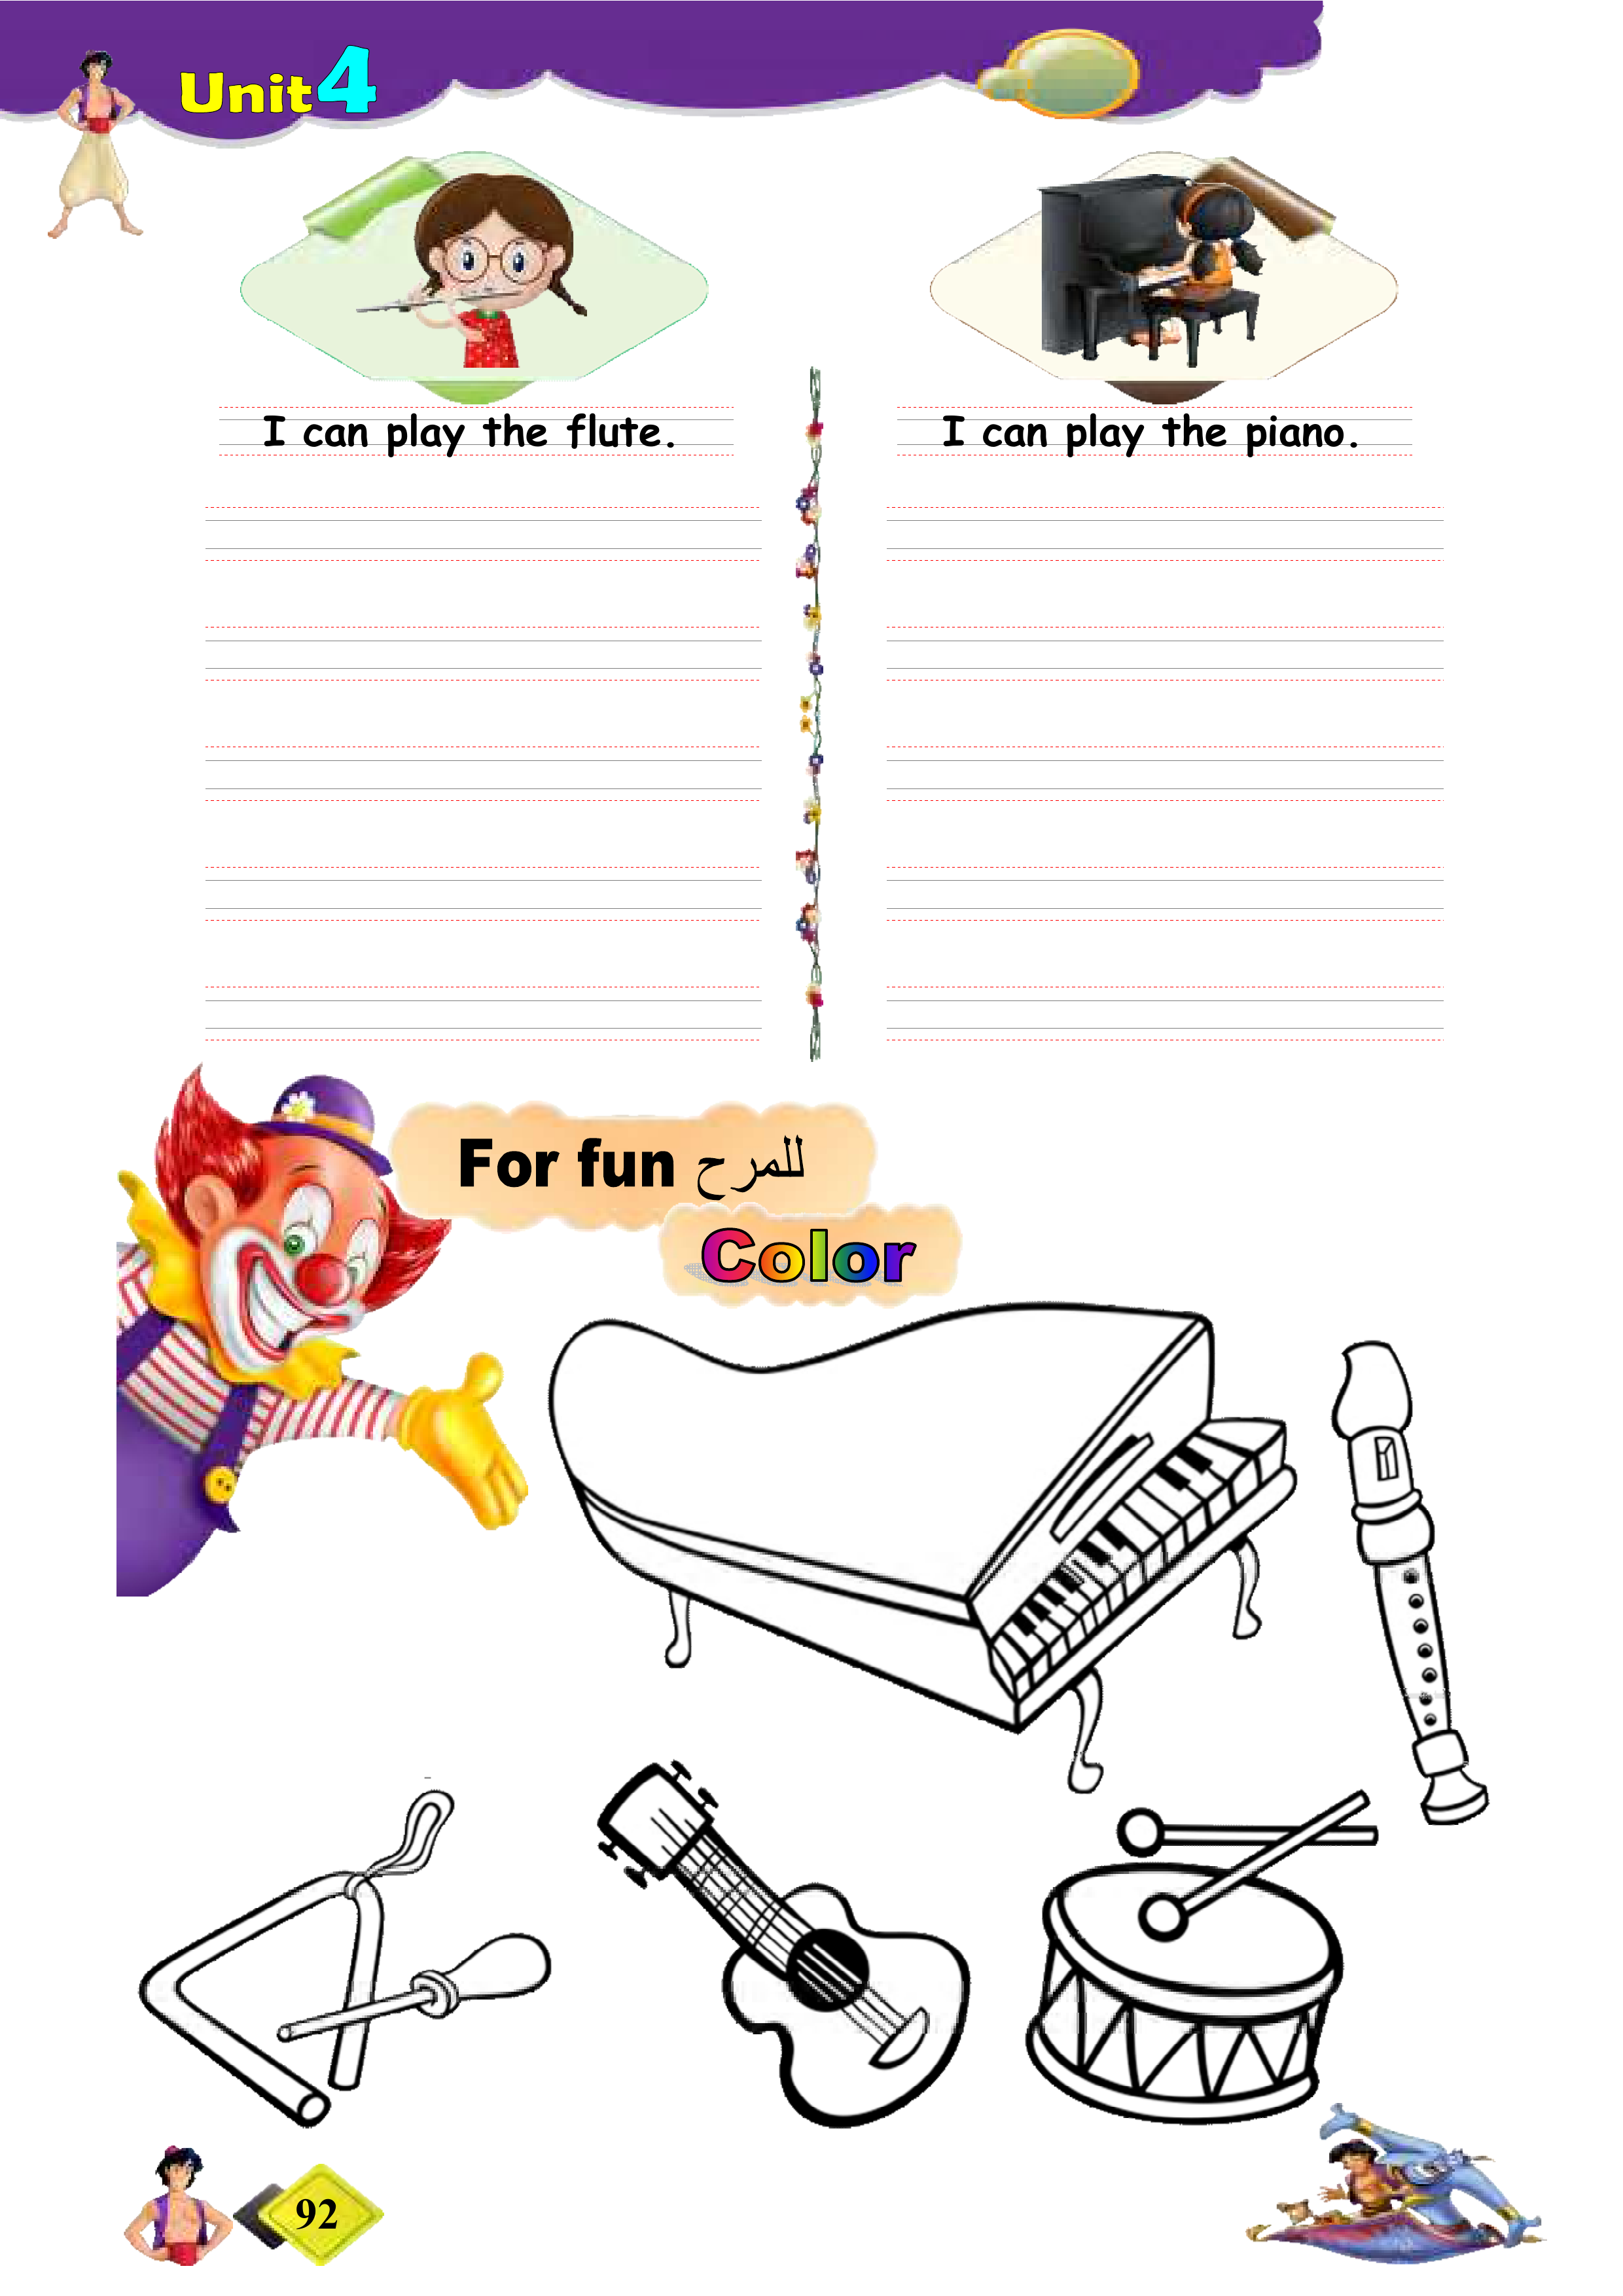 Unit4
I can play the flute.
I can play the piano.
For fun للمرح
Color
92